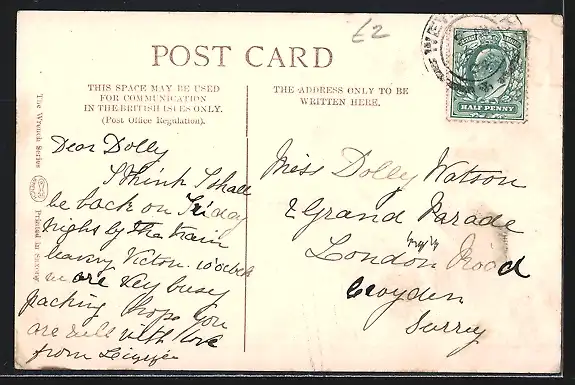 £2
POST CARD
THIS SPACE MAY BE USED
FOR COMMUNICATION
IN THE BRITISH ISLES ONLY.
(Post Office Regulation).
THE ADDRESS ONLY TO BE
WRITTEN HERE.
HALF PENNY
The Wrench Series
Printed in Saxony
Dear Dolly
I think I shall
be back on Friday
night by the train
leaving Victon. 10 oclock
we are very busy
packing I hope you
are with love
from
Miss Dolly Watson
2 Grand Parade
London Road
Croyden
Surrey